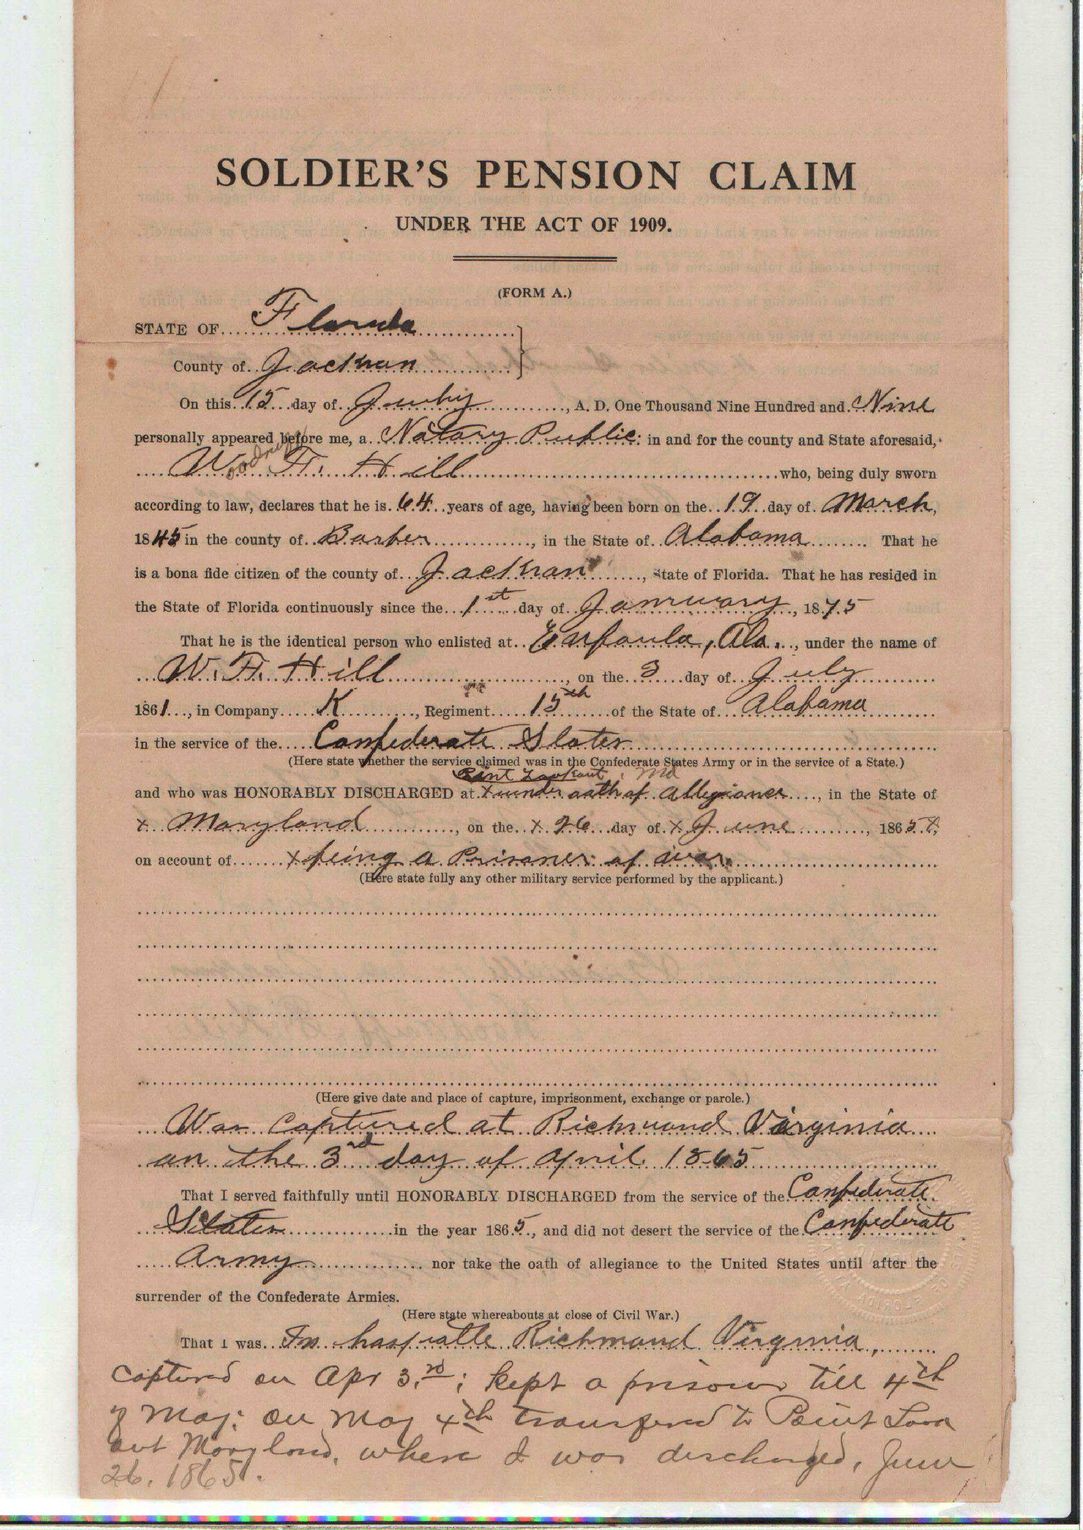 SOLDIER'S PENSION CLAIM
UNDER THE ACT OF 1909.
(FORM A.)
STATE OF Florida
County of Jackson
On this 15 day of July, A. D. One Thousand Nine Hundred and Nine
personally appeared before me, a Notary Public in and for the county and State aforesaid,
Woodruff
W. F. Hill who, being duly sworn
according to law, declares that he is 64 years of age, having been born on the 19 day of March,
1845 in the county of Barber, in the State of Alabama. That he
is a bona fide citizen of the county of Jackson, State of Florida. That he has resided in
the State of Florida continuously since the 1st day of Janruary, 1875
That he is the identical person who enlisted at Eufaula, Ala., under the name of
W. F. Hill, on the 3 day of July
1861, in Company K, Regiment 15th of the State of Alabama
in the service of the Confederate States
(Here state whether the service claimed was in the Confederate States Army or in the service of a State.)
Point Lookout, Md
and who was HONORABLY DISCHARGED at x under oath of Allegiance, in the State of
x Maryland, on the x 26 day of x June, 1865 x
on account of x being a Prisoner of war.
(Here state fully any other military service performed by the applicant.)
(Here give date and place of capture, imprisonment, exchange or parole.)
Was captured at Richmond Virginia
on the 3rd day of April 1865
That I served faithfully until HONORABLY DISCHARGED from the service of the Confederate
States in the year 1865, and did not desert the service of the Confederate
Army nor take the oath of allegiance to the United States until after the
surrender of the Confederate Armies.
(Here state whereabouts at close of Civil War.)
That I was In hospatle Richmond Virginia,
captured on Apr 3rd; kept a prisoner till 4th
of May: on May 4th transfered to Point Look
out Maryland, where I was discharged, June
26, 1865.